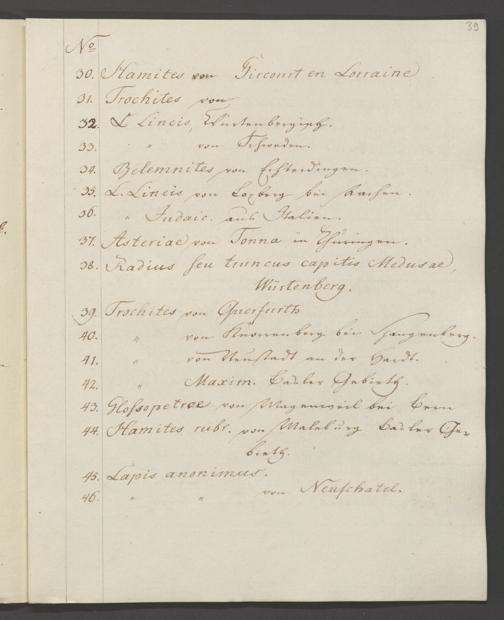 39
No
30. Hamites von Gircourt en Lorraine
31. Trochites von
32. L. Lincis, Würtenbergisch.
33. " von Schweden.
34. Belemnites von Echterdingen.
35. L. Lincis von bei Aachen.
36. " Judaic. aus Italien.
37. Asteriae von Tonna in Thüringen.
38. Radius seu truncus capitis Medusae,
Würtenberg.
39. Trochites von Querfurth
40. " von bei Spangenberg.
41. " von Neustadt an der Hardt.
42. " Maxim. Basler Gebieth.
43. Glossopetrae von Magenweil bei Bern
44. Hamites rubr. von Basler Ge-
bieth.
45. Lapis anonimus.
46. " " von Neuschatel.